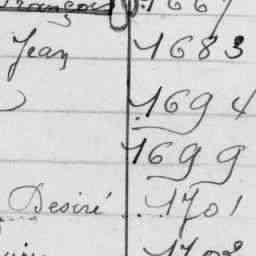 François 1667
Jean 1683
1694
1699
Desiré 1701